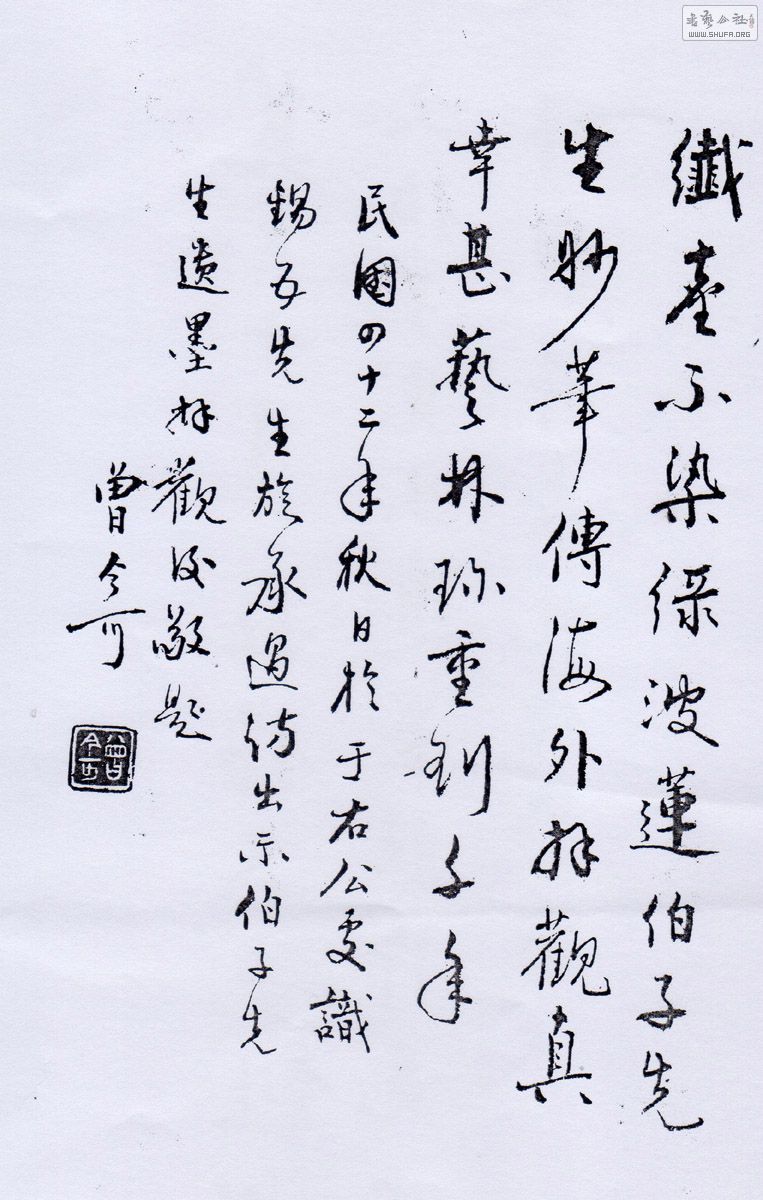 纖塵不染綠波蓮伯子先
生妙筆傳海外拜觀真
幸甚藝林珍重到千年
民國四十二年秋日於于右公處識
錫五先生旋承過訪出示伯子先
生遺墨拜觀後敬題
曾今可
曾今可
書藝公社
WWW.SHUFA.ORG